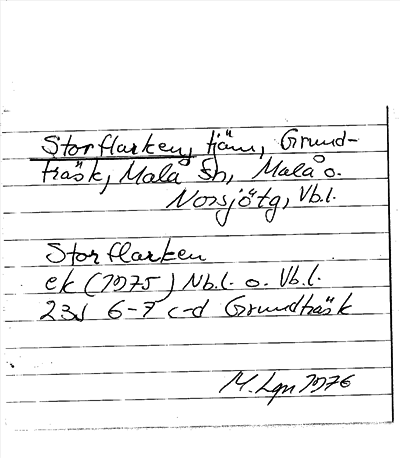 Storflarken, tjärn, Grund-
träsk, Malå Sn, Malå o.
Norsjötg, Vb.l.
Storflarken
ek (1975) Nb.l. o. Vb.l.
23J 6-7 c-d Grundträsk
M. Lgn 1976